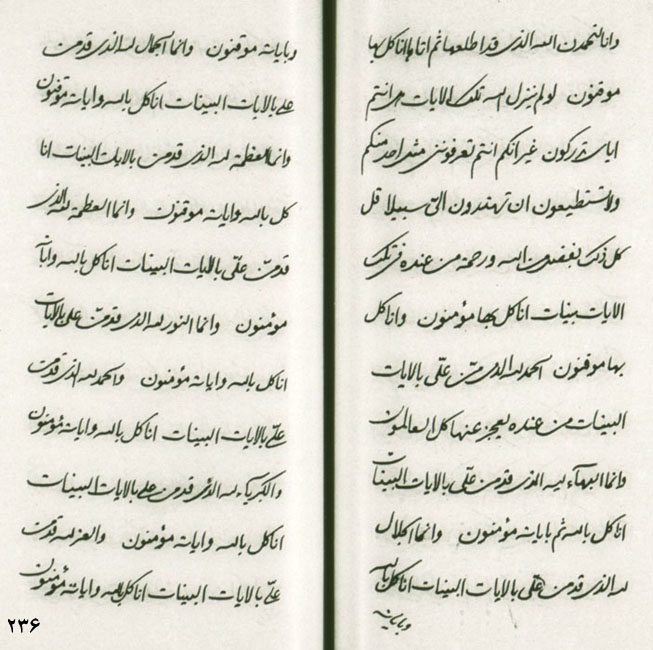 وانا لنحمدن الله الذی قد اطلعها ثم انا بها انا كل بها
موقنون لو لم ینزل الله تلك الایات هل انتم
ایات تدركون غیر انكم انتم تعرفوننی مثل احد منكم
ولا تستطیعون ان تهتدون الی سبیلا قل
كل ذلك بفضل من الله و رحمة من عنده فی تلك
الایات بینات انا كل بها مؤمنون وانا كل
بها موقنون الحمد لله الذی من علی بالایات
البینات من عنده یعجز عنها كل العالمون
وانما البهآء لله الذی قد من علی بالایات البینات
انا كل بالله ثم بایاته مؤمنون وانما الجلال
لله الذی قد من علی بالایات البینات انا كل بالله
وبایاته
وبایاته موقنون وانما الجمال لله الذی قد من
علی بالایات البینات انا كل بالله وایاته موقنون
وانما العظمة لله الذی قد من بالایات البینات انا
كل بالله وایاته موقنون وانما العظمة لله الذی
قد من علی بالایات البینات انا كل بالله وایاته
مؤمنون وانما النور لله الذی قد من علی بالایات
انا كل بالله وایاته مؤمنون والحمد لله الذی قد من
علی بالایات البینات انا كل بالله وایاته مؤمنون
والكبریاء لله الذی قد من علی بالایات البینات
انا كل بالله وایاته مؤمنون والعز لله قد من
علی بالایات البینات انا كل بالله وایاته مؤمنون
۲۳۶